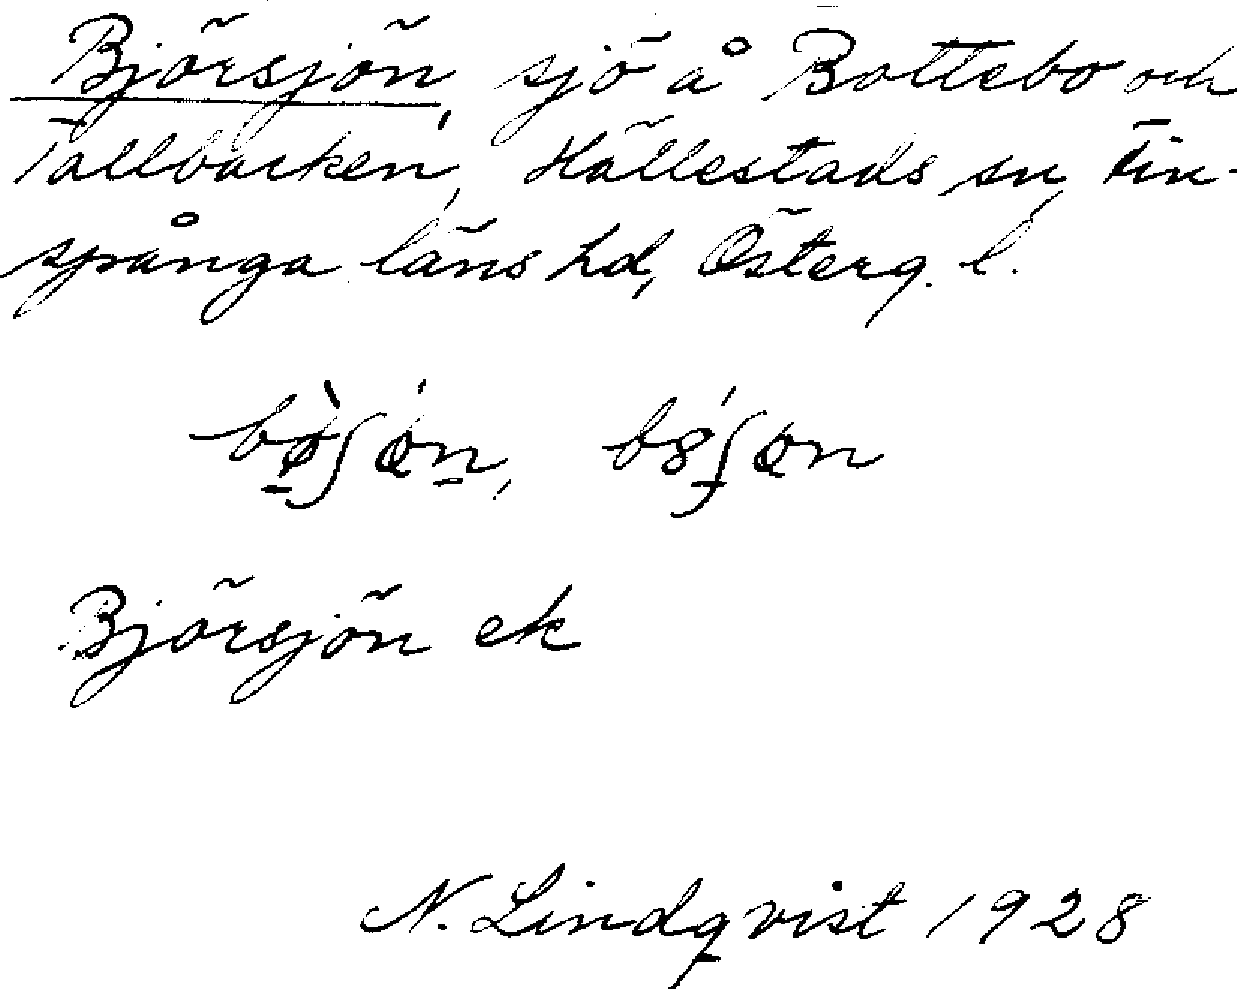 Björsjön, sjö å Bottebo och
Tallbacken, Hällestads sn, Fin-
spånga läns hd, Österg. l.
Björsjön ek
N. Lindqvist 1928